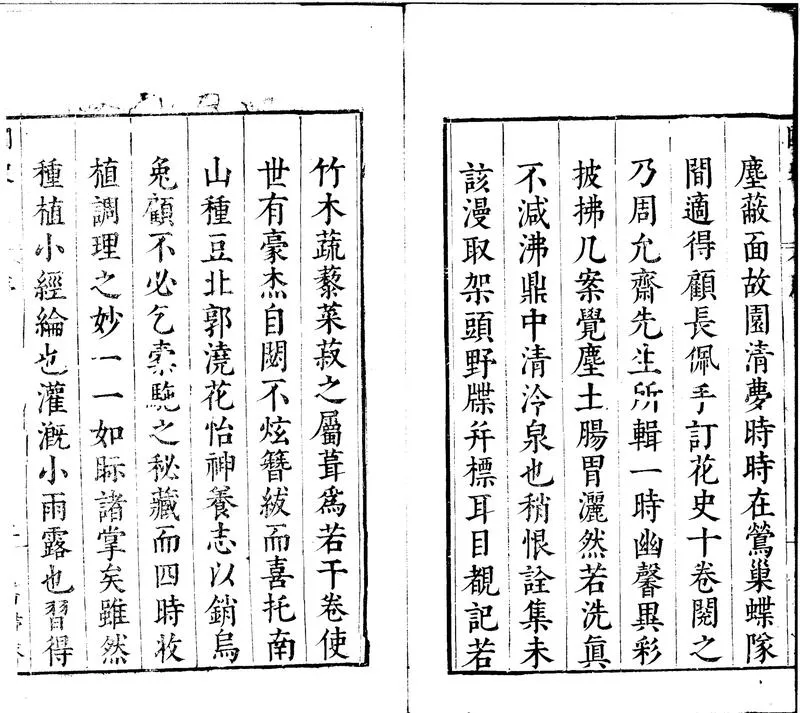 塵蔽面故園清夢時時在鶯巢蝶隊
間適得顧長佩手訂花史十卷閱之
乃周允齋先生所輯一時幽馨異彩
披拂几案覺塵土腸胃灑然若洗眞
不減沸鼎中清泠泉也稍恨詮集未
該漫取架頭野牒幷標耳目覩記若
竹木蔬藜菜菽之屬葺爲若干卷使
世有豪杰自閟不炫簪紱而喜托南
山種豆北郭澆花怡神養志以銷烏
兔顧不必乞橐駝之秘藏而四時收
植調理之妙一一如眎諸掌矣雖然
種植小經綸也灌漑小雨露也習得